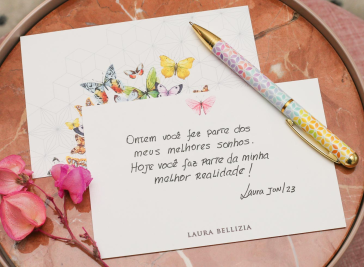 Ontem você fez parte dos
meus melhores sonhos.
Hoje você faz parte da minha
melhor realidade!
Laura Jun/23
LAURA BELLIZIA